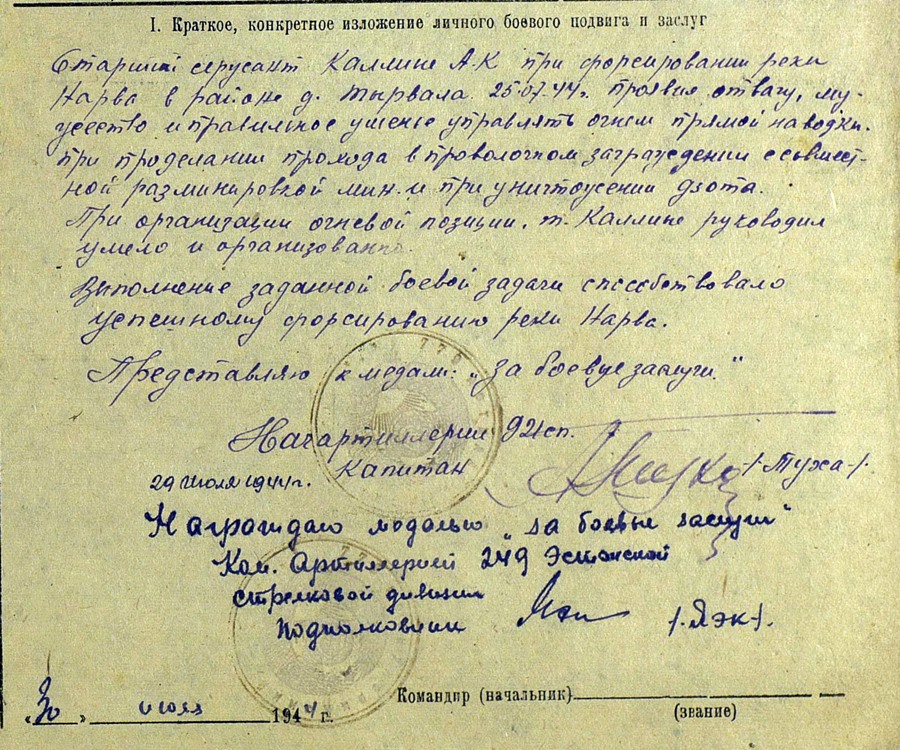 I. Краткое, конкретное изложение личного боевого подвига и заслуг
Старший сержант Каллине А.К при форсировании реки
Нарва в районе д. Тырвала 25.07.44г. проявил отвагу, му-
жество и правильное уменье управлять огнем прямой наводки.
при проделании прохода в проволочном заграждении с совмест-
ной разминировкой мин. и при уничтожении дзота.
При организации огневой позиции, т. Каллине руководил
умело и организованно.
Выполнение заданной боевой задачи способствовало
успешному форсированию реки Нарва.
Представляю к медали: „За боевые заслуги."
Начартиллерии 921сп.
Капитан /-Туха-/.
29 июля 1944г.
Награждаю медалью „за боевые заслуги"
Ком. Артиллерией 249 Эстонской
стрелковой дивизии
Подполковник /.Яэк-/.
Командир (начальник)
„30" июля 1944 г.
(звание)